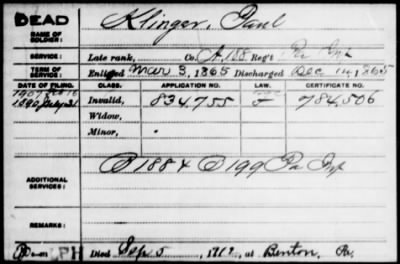 DEAD
NAME OF SOLDIER: Klinger, Paul
SERVICE: Late rank, Co. A, 188 Reg't Pa Inf
TERM OF SERVICE: Enlisted Mar 3, 1865 Discharged Dec 14, 1865
DATE OF FILING. CLASS. APPLICATION NO. LAW. CERTIFICATE NO.
1890 July 31 Invalid, 834,755 784,506
Widow,
Minor,
ADDITIONAL SERVICES: 188 & 199 Pa Inf
REMARKS:
Died Sep. 5, at Benton, Pa.